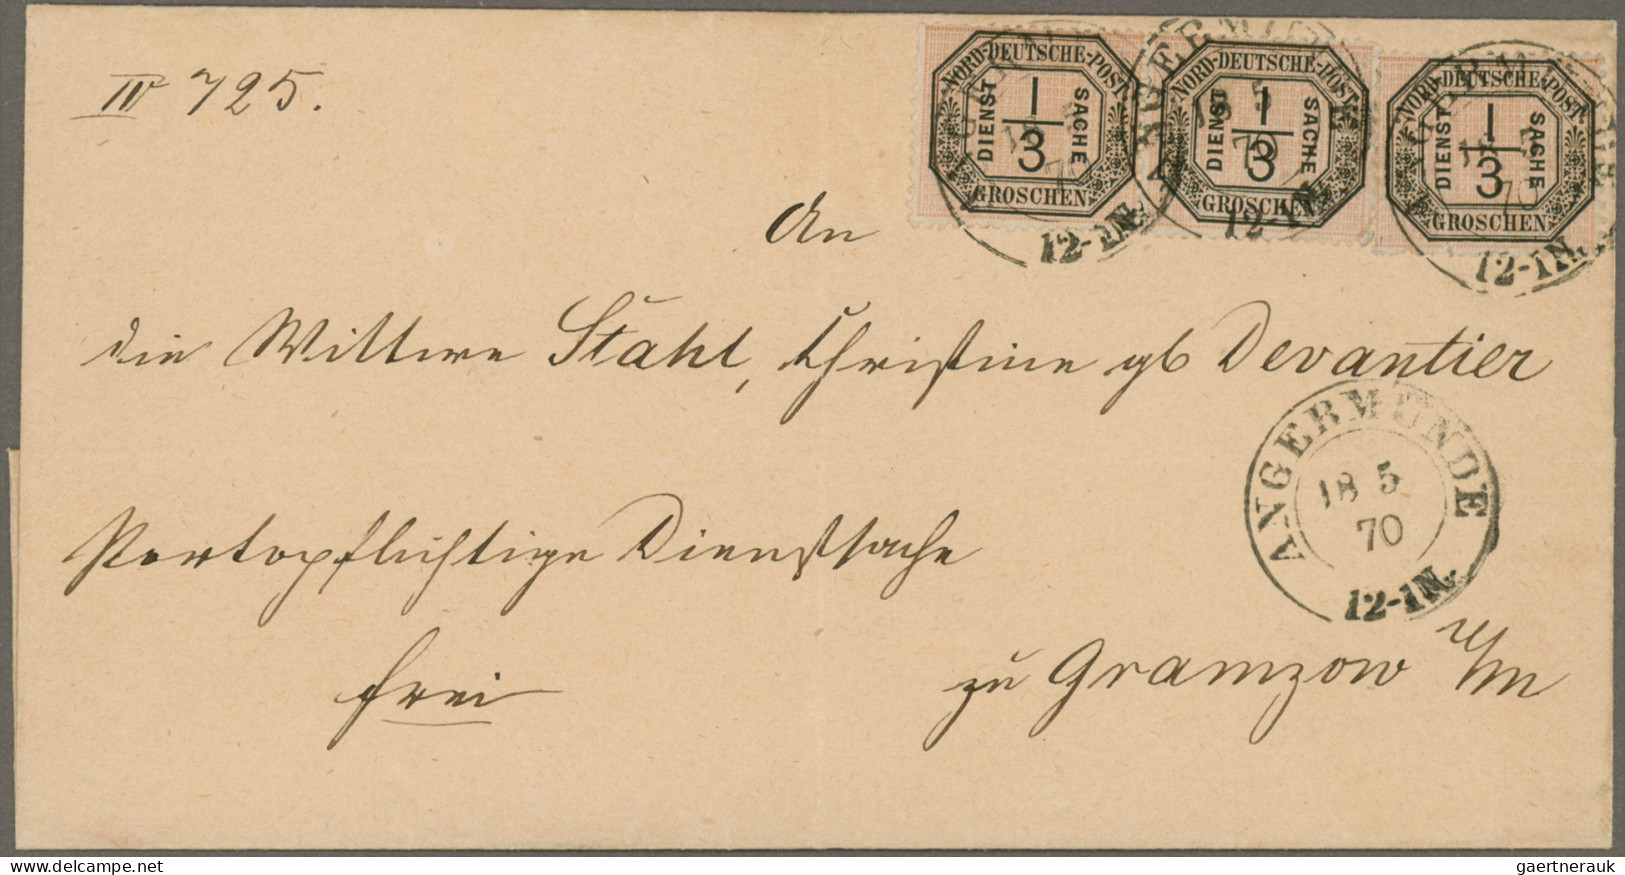 IV 725.
NORD-DEUTSCHE-POST
DIENST 1/3 SACHE
GROSCHEN
NORD-DEUTSCHE-POST
DIENST 1/3 SACHE
GROSCHEN
NORD-DEUTSCHE-POST
DIENST 1/3 SACHE
GROSCHEN
12-1N.
18 5
70
12-1N.
70
12-1N.
An
die Wittwe Stahl, Christine gb Devantier
ANGERMÜNDE
18 5
70
12-1N.
Portopflichtige Dienstsache
frei
zu Gramzow U/M
the best online collectibles marketplace
gaertnerauk